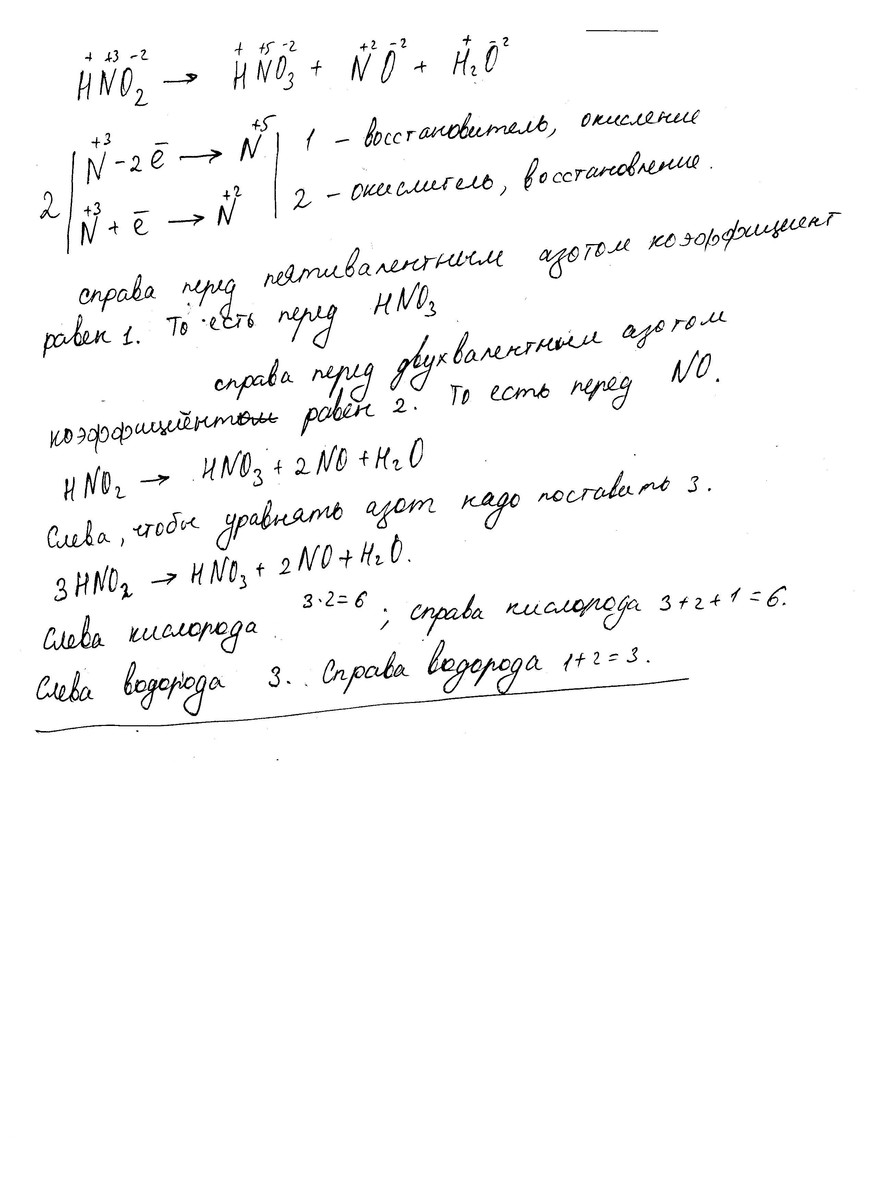 H⁺N⁺³O₂⁻² → H⁺N⁺⁵O₃⁻² + N⁺²O⁻² + H₂⁺O⁻²
2 | N⁺³ - 2ē → N⁺⁵ | 1 – восстановитель, окисление
N⁺³ + ē → N⁺² | 2 – окислитель, восстановление.
справа перед пятивалентным азотом коэффициент
равен 1. То есть перед HNO₃
справа перед двухвалентным азотом
коэффициент равен 2. То есть перед NO.
HNO₂ → HNO₃ + 2NO + H₂O
Слева, чтобы уравнять азот надо поставить 3.
3HNO₂ → HNO₃ + 2NO + H₂O.
Слева кислорода 3·2=6 ; справа кислорода 3+2+1=6.
Слева водорода 3. Справа водорода 1+2=3.